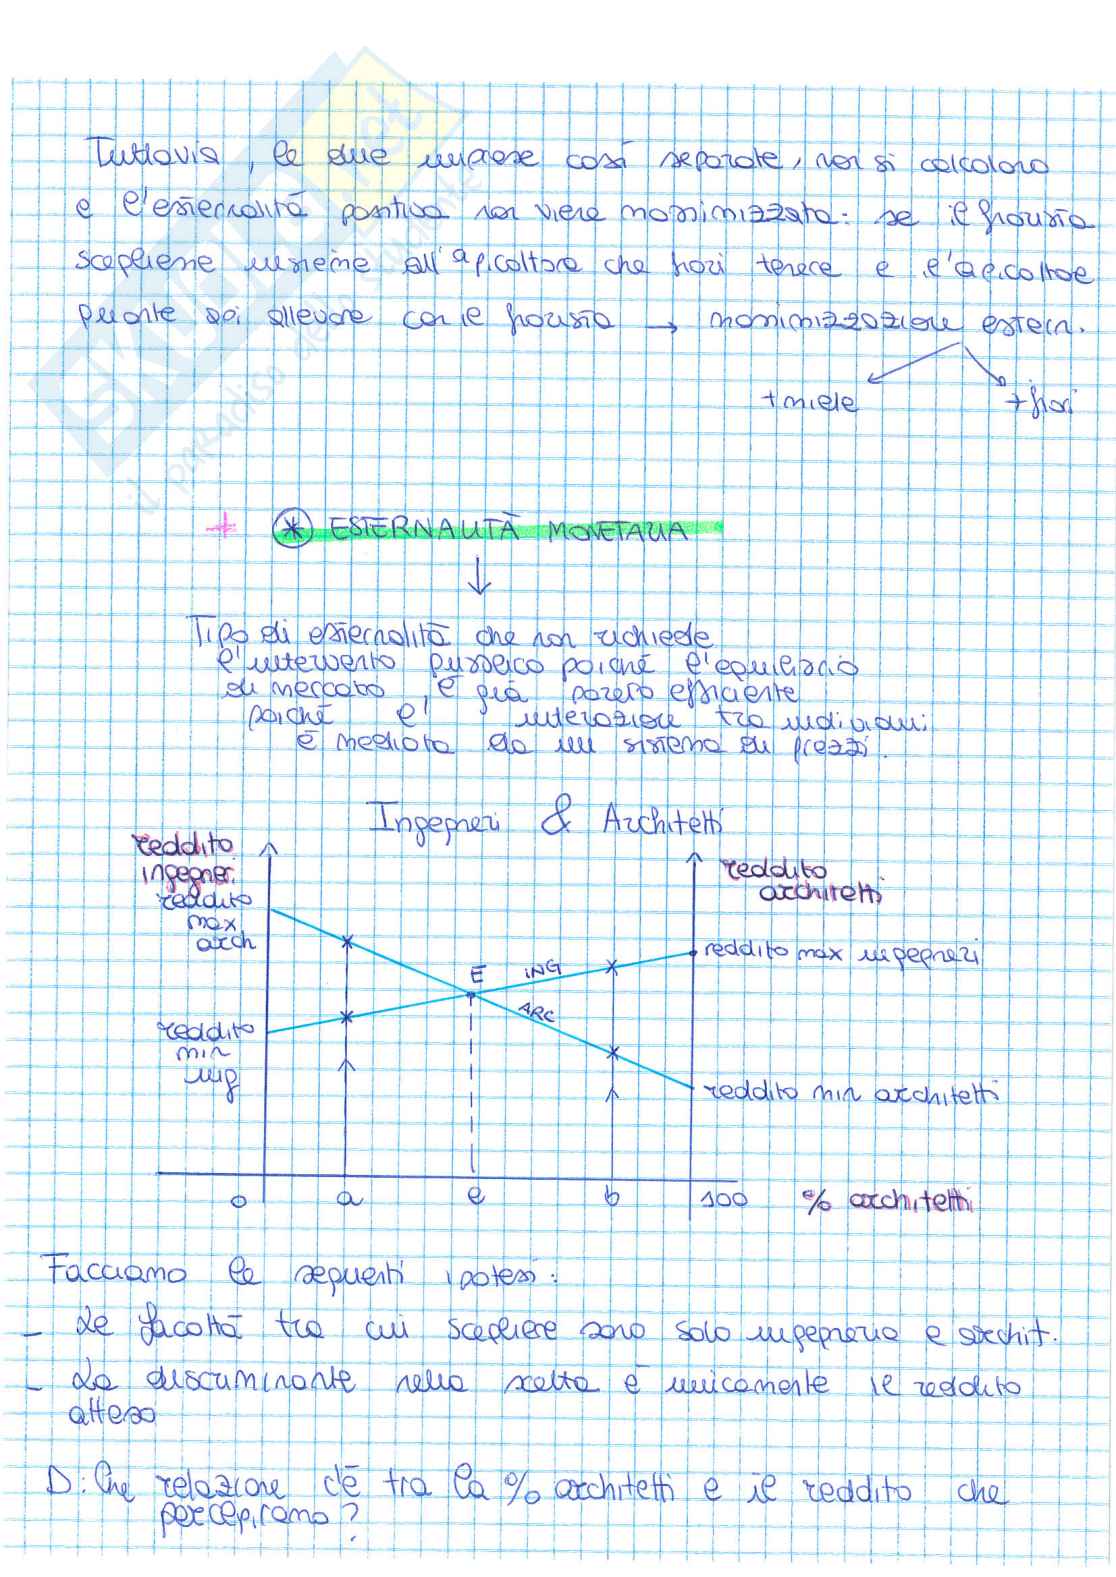 Tuttavia, le due imprese così separate, non si calcolano
e l'esternalità positiva non viene massimizzata: se il fiorista
scegliesse insieme all'apicoltore che fiori tenere e l'apicoltore
quante api allevare con il fiorista → massimizzazione estern.
+miele +fiori
+ * ESTERNALITÀ MONETARIA
↓
Tipo di esternalità che non richiede
l'intervento pubblico poiché l'equilibrio
di mercato, è già pareto efficiente
poiché l' interazione tra individui
è mediata da un sistema di prezzi.
Ingegneri & Architetti
reddito
ingegneri
reddito
max
arch
reddito
architetti
reddito max ingegneri
E ING
ARC
reddito
min
ing
reddito min architetti
0 a e b 100 % architetti
Facciamo le seguenti ipotesi:
- Le facoltà tra cui scegliere sono solo ingegneria e archit.
- La discriminante nella scelta è unicamente il reddito
atteso
D: Che relazione c'è tra la % architetti e il reddito che
percepiranno?
SKUOLA.net
il paradiso dello studente